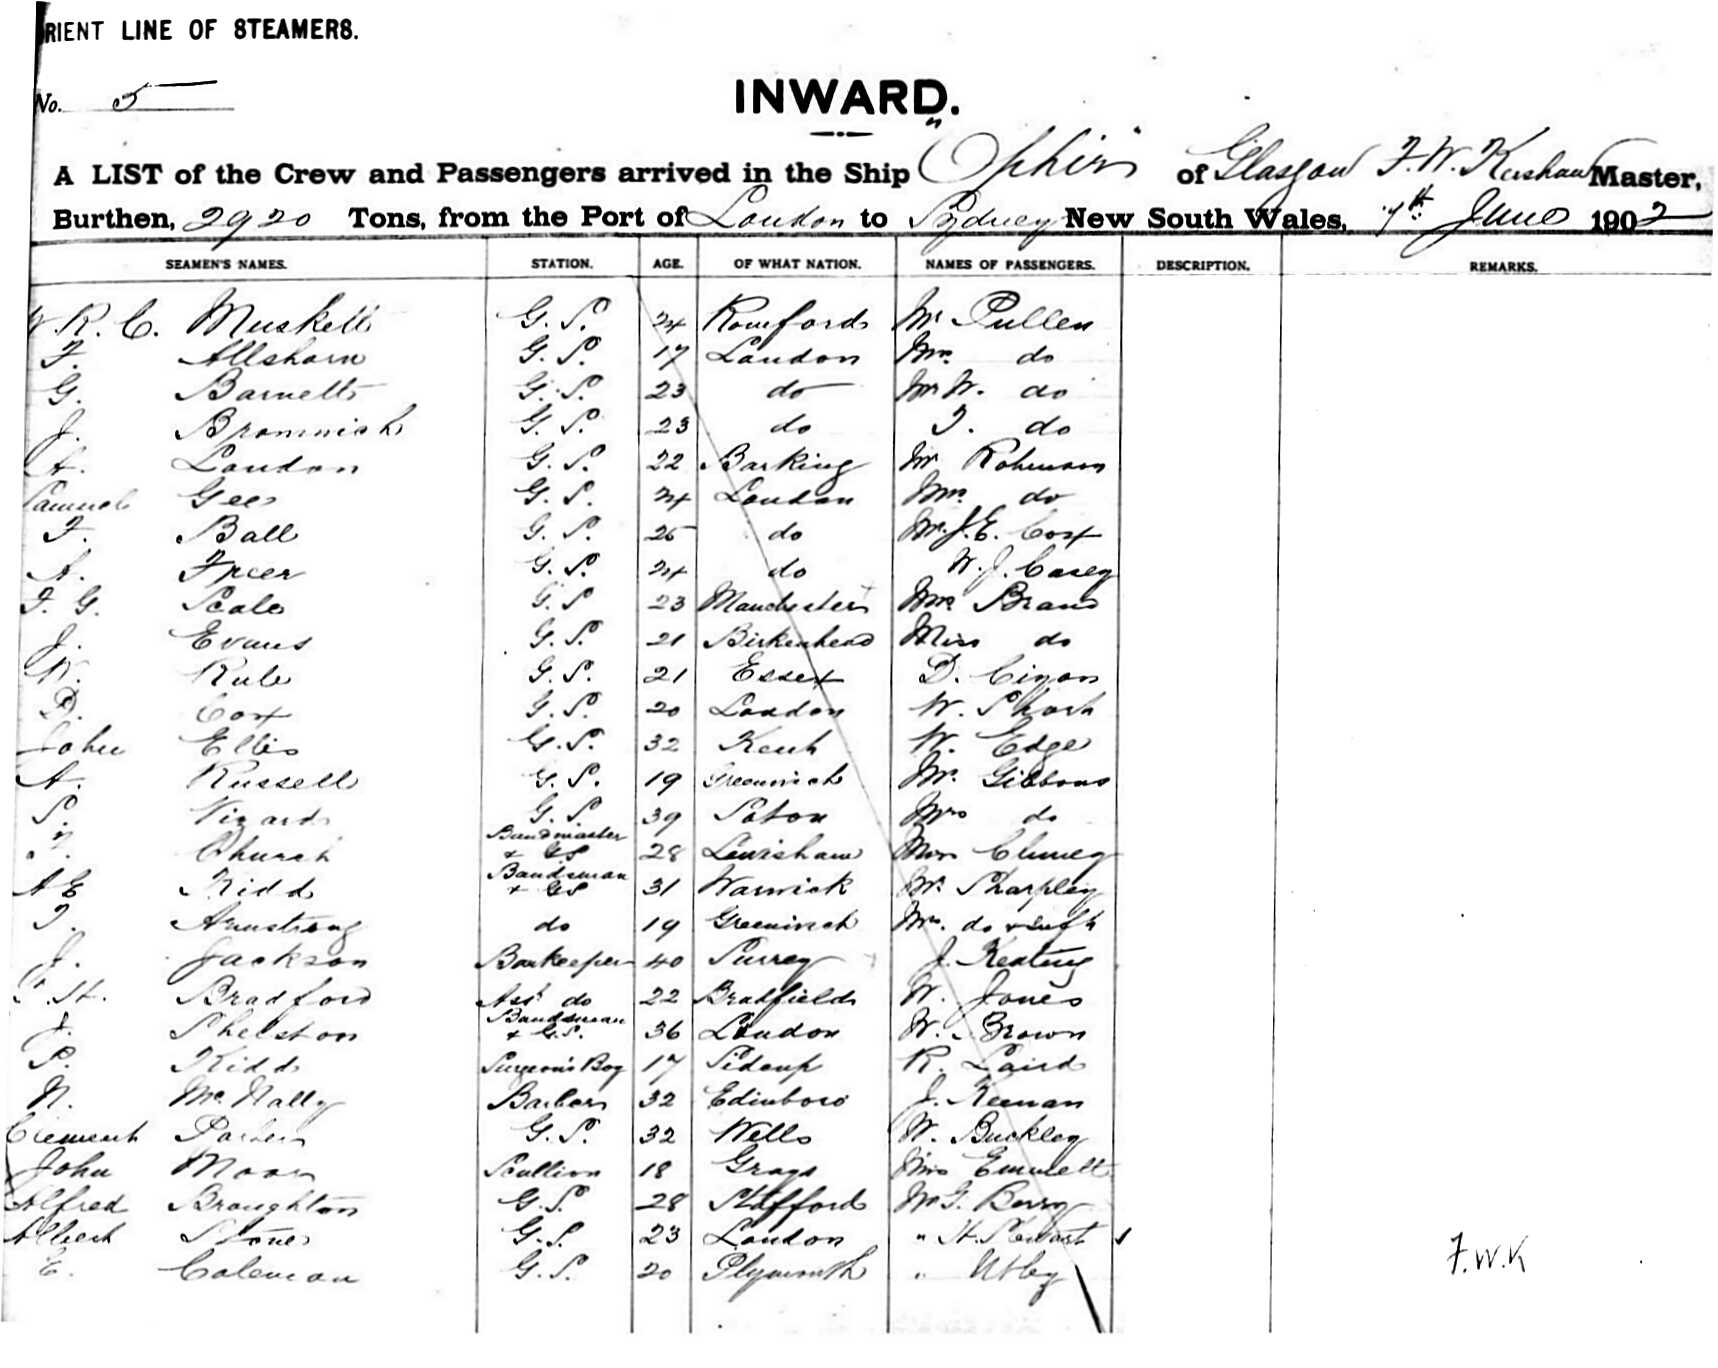 RIENT LINE OF STEAMERS.
No. 5
INWARD.
A LIST of the Crew and Passengers arrived in the Ship "Ophir" of Glasgow F. W. Kershaw Master,
Burthen, 2920 Tons, from the Port of London to Sydney New South Wales, 7th June 1902
SEAMEN'S NAMES. STATION. AGE. OF WHAT NATION. NAMES OF PASSENGERS. DESCRIPTION. REMARKS.
R. C. Muskett G. S. 24 Romford Mr Pullen
F. Allshorn G. S. 17 London Mrs do
G. Barnett G. S. 23 do Mr W. do
J. Bromwich G. S. 23 do T. do
A. London G. S. 22 Barking Mr Robinson
Samuel Gee G. S. 24 London Mrs do
F. Ball G. S. 25 do Mr J. E. Cox
A. Freer G. S. 24 do W. J. Casey
F. G. Seale G. S 23 Manchester Mrs
J. Evans G. S. 21 Birkenhead Miss do
W. Rule G. S. 21 Essex D.
D. Cox G. S. 20 London W. Short
John Ellis G. S. 32 Kent W. Edge
A. Russell G. S. 19 Greenwich Mr. Gibbons
S. Vizard G. S. 39 Mrs do
Church Bandmaster + GS 28 Lewisham
A E Kidd Bandsman + GS 31 Warwick Mr. Sharpley
T. Armstrong do 19 Greenwich Mrs. do + Inft
J. Jackson Barkeeper 40 Surrey J. Keating
H. Bradford Asst do 22 Bradfield W. Jones
J. Shelston Bandsman + G.S. 36 London W. Brown
S. Kidd Surgeon's Boy 17 Sidcup R. Laird
N. McNally Barber 32 Edinboro J. Keenan
Clement Porter G. S. 32 Wells W. Buckley
John Moor Scullion 18 Grays Mrs Emmett
Alfred Broughton G. S. 28 Stafford Mr G. Berry
Albert Stone G. S. 23 London " H. Stewart
E. Coleman G. S. 20 Plymouth " Utley
F. W. K